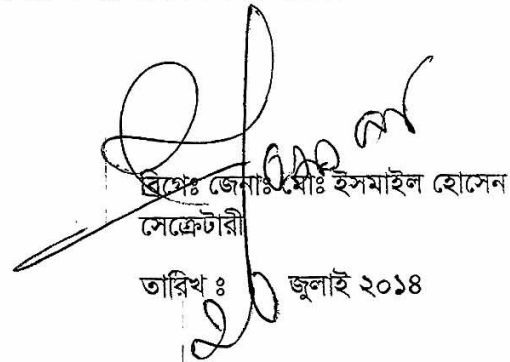 বিগ্রেঃ জেনাঃ মোঃ ইসমাইল হোসেন
সেক্রেটারী
তারিখ ঃ জুলাই ২০১৪